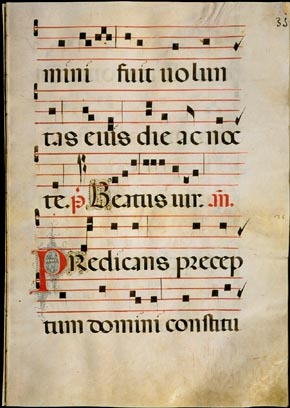 33
mini fuit uolun
tas eius die ac noc
te. p̄. Beatus uir. an̄.
Predicans precep
tum domini constitu